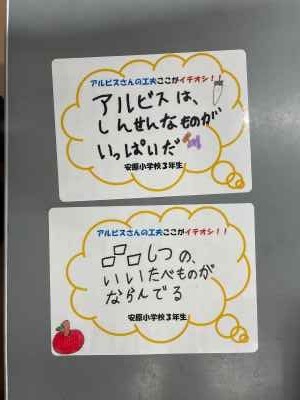 アルビスさんの工夫ここがイチオシ!!
アルビスは、
しんせんなものが
いっぱいだ
安原小学校3年生
アルビスさんの工夫ここがイチオシ!!
品しつの、
いいたべものが
ならんでる
安原小学校3年生